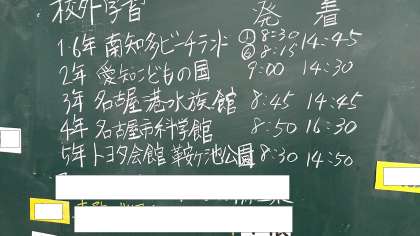 校外学習 発 着
1.6年 南知多ビーチランド ①8:30 ⑥8:15 14:45
2年 愛知こどもの国 9:00 14:30
3年 名古屋港水族館 8:45 14:45
4年 名古屋市科学館 8:50 16:30
5年 トヨタ会館 鞍ケ池公園 8:30 14:50